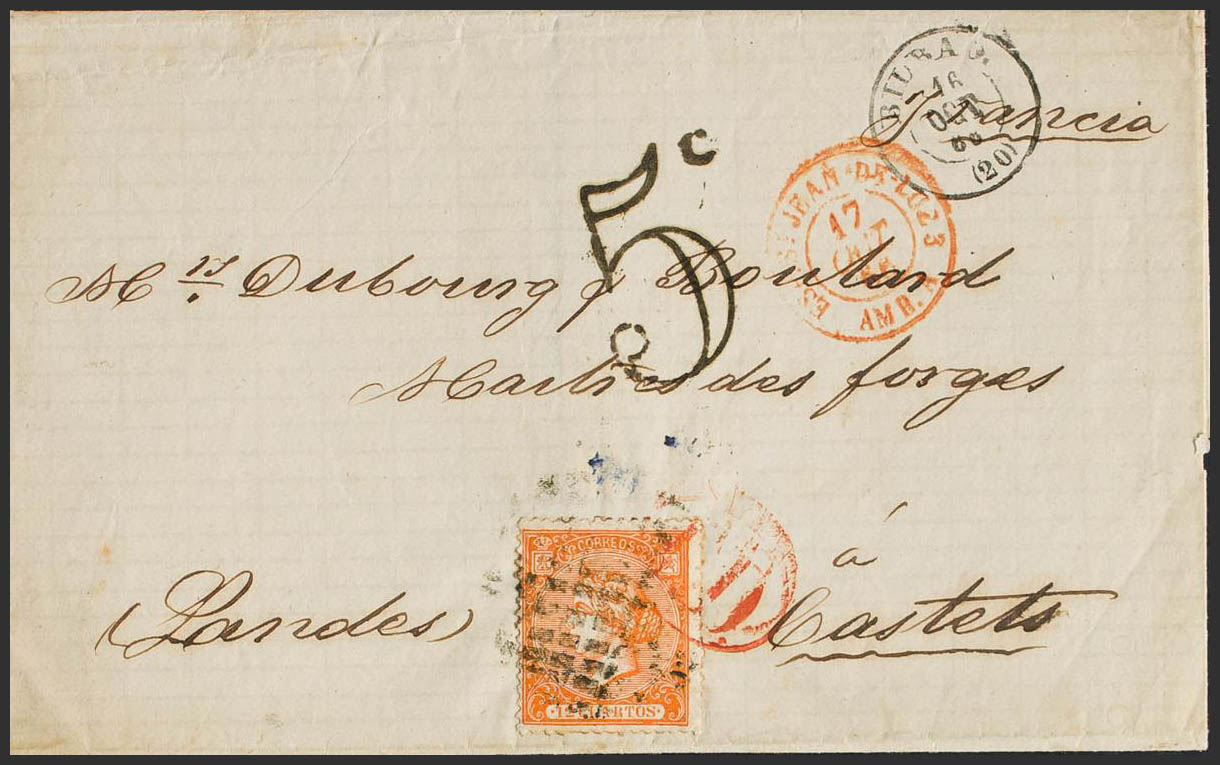 BILBAO.
16
OCT
(20)
Francia
5c
ST JEAN-DE-LUZ 3
17
OCT
ESP. AMB.
Mrs. Dubourg y Boulard
Maitres des forges
á
(Landes) Castets
CORREOS
12 CUARTOS